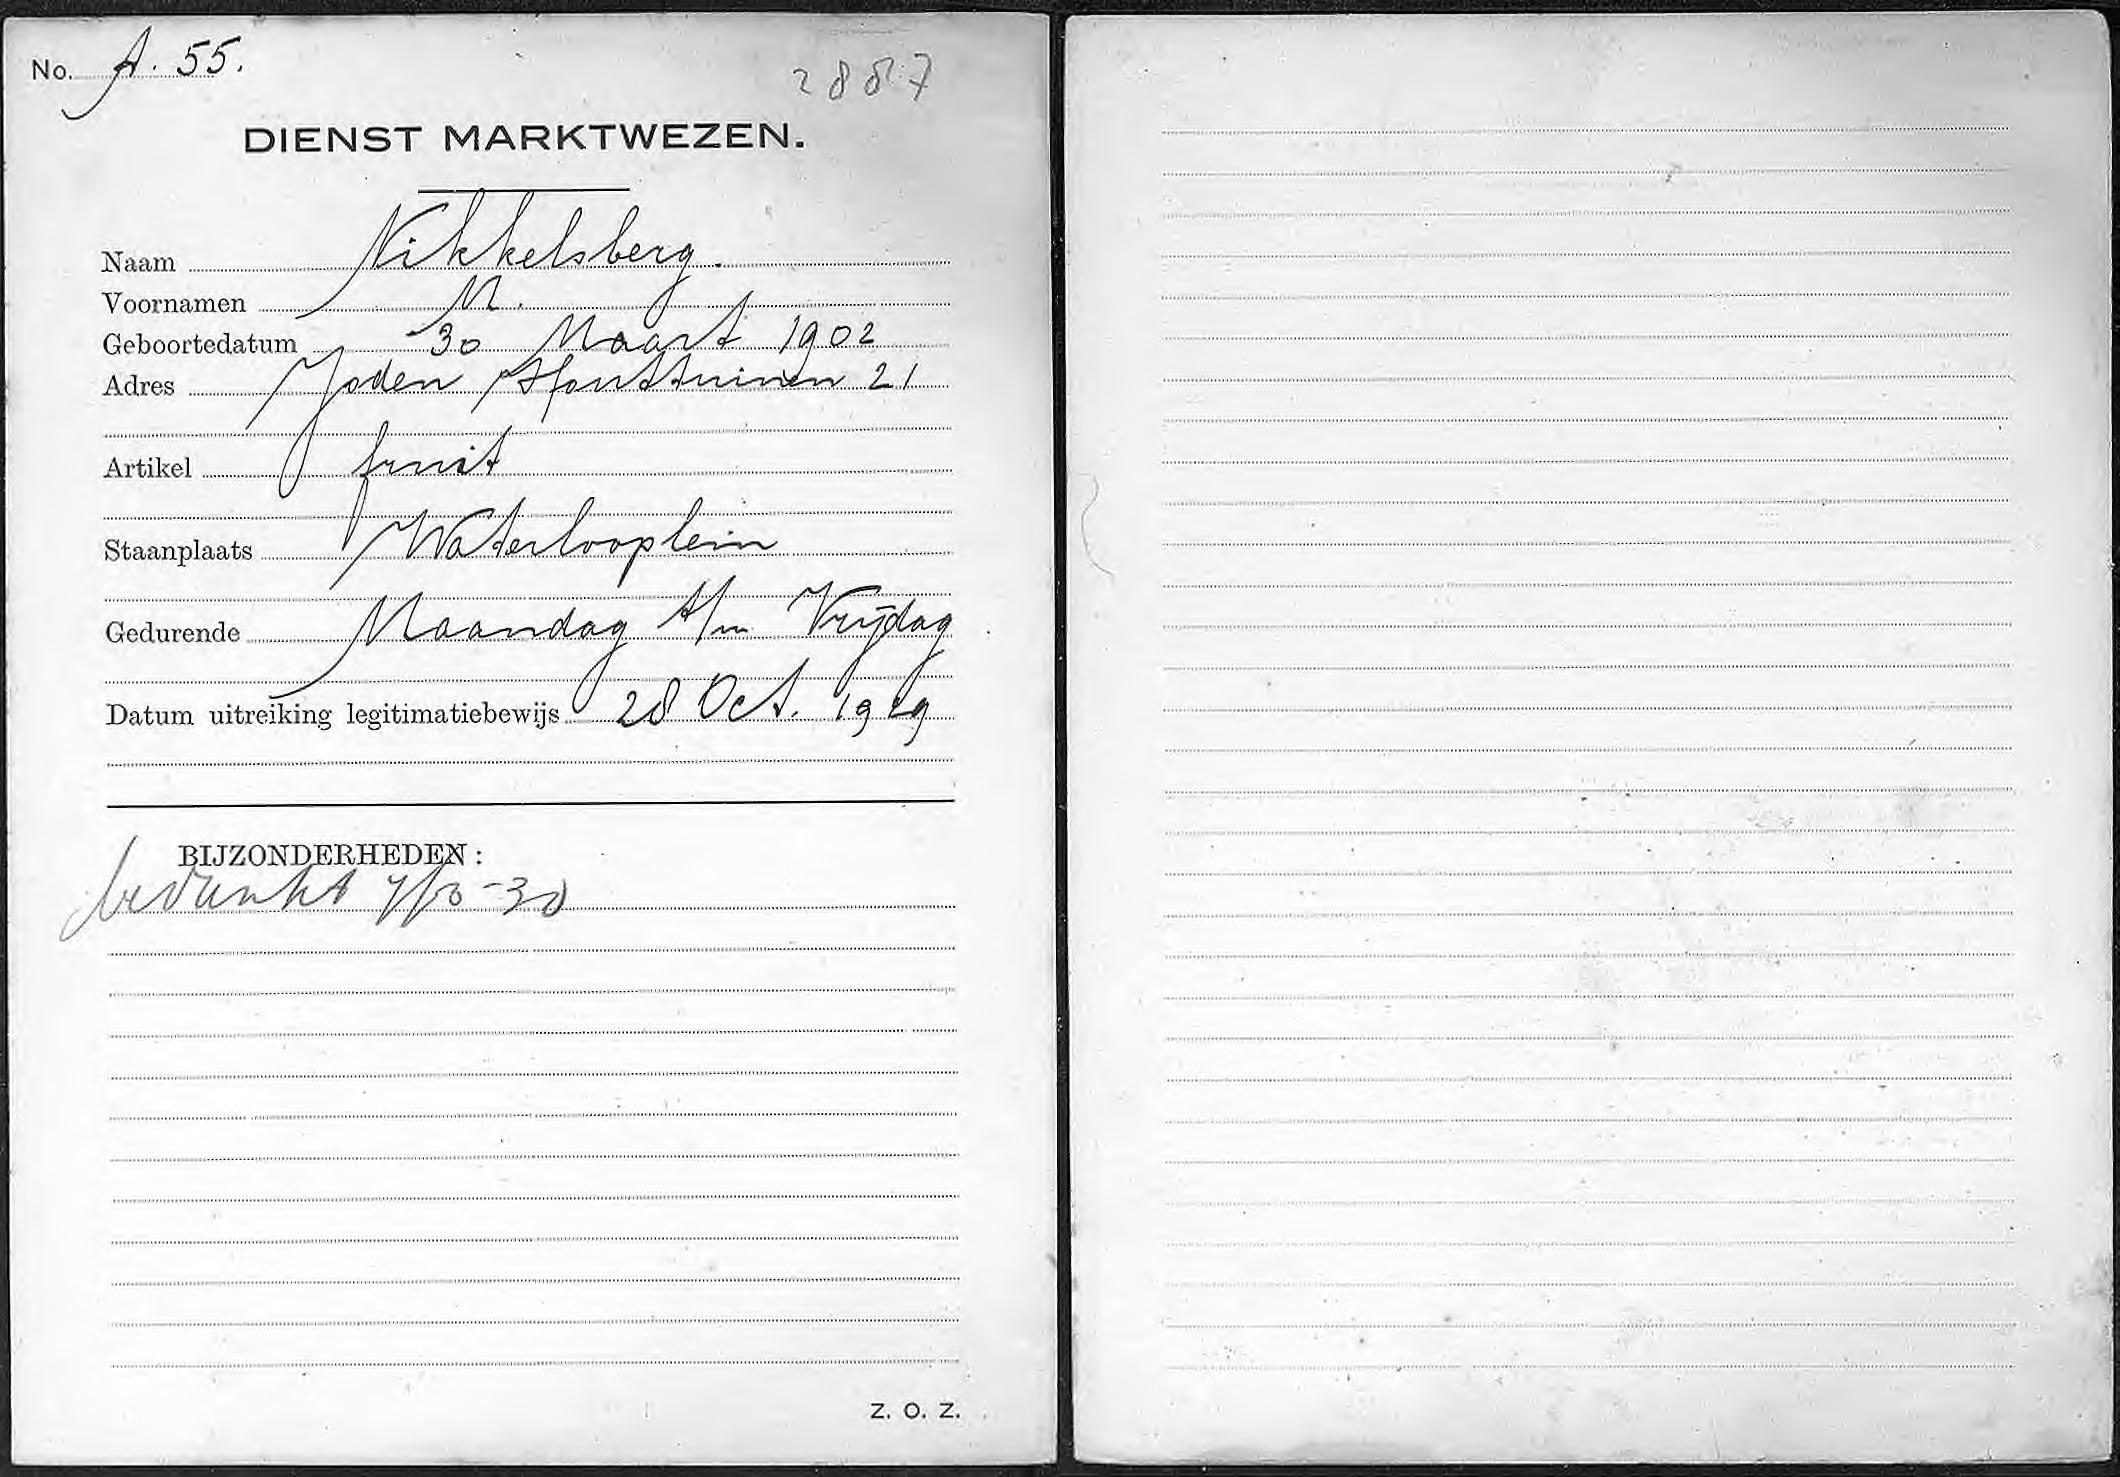 No. A. 55.
2887
DIENST MARKTWEZEN.
Naam Nikkelsberg.
Voornamen M.
Geboortedatum 30 Maart 1902
Adres Joden Houttuinen 21
Artikel fruit
Staanplaats Waterlooplein
Gedurende Maandag t/m Vrijdag
Datum uitreiking legitimatiebewijs 28 Oct. 1929
BIJZONDERHEDEN:
bedankt
Z. O. Z.